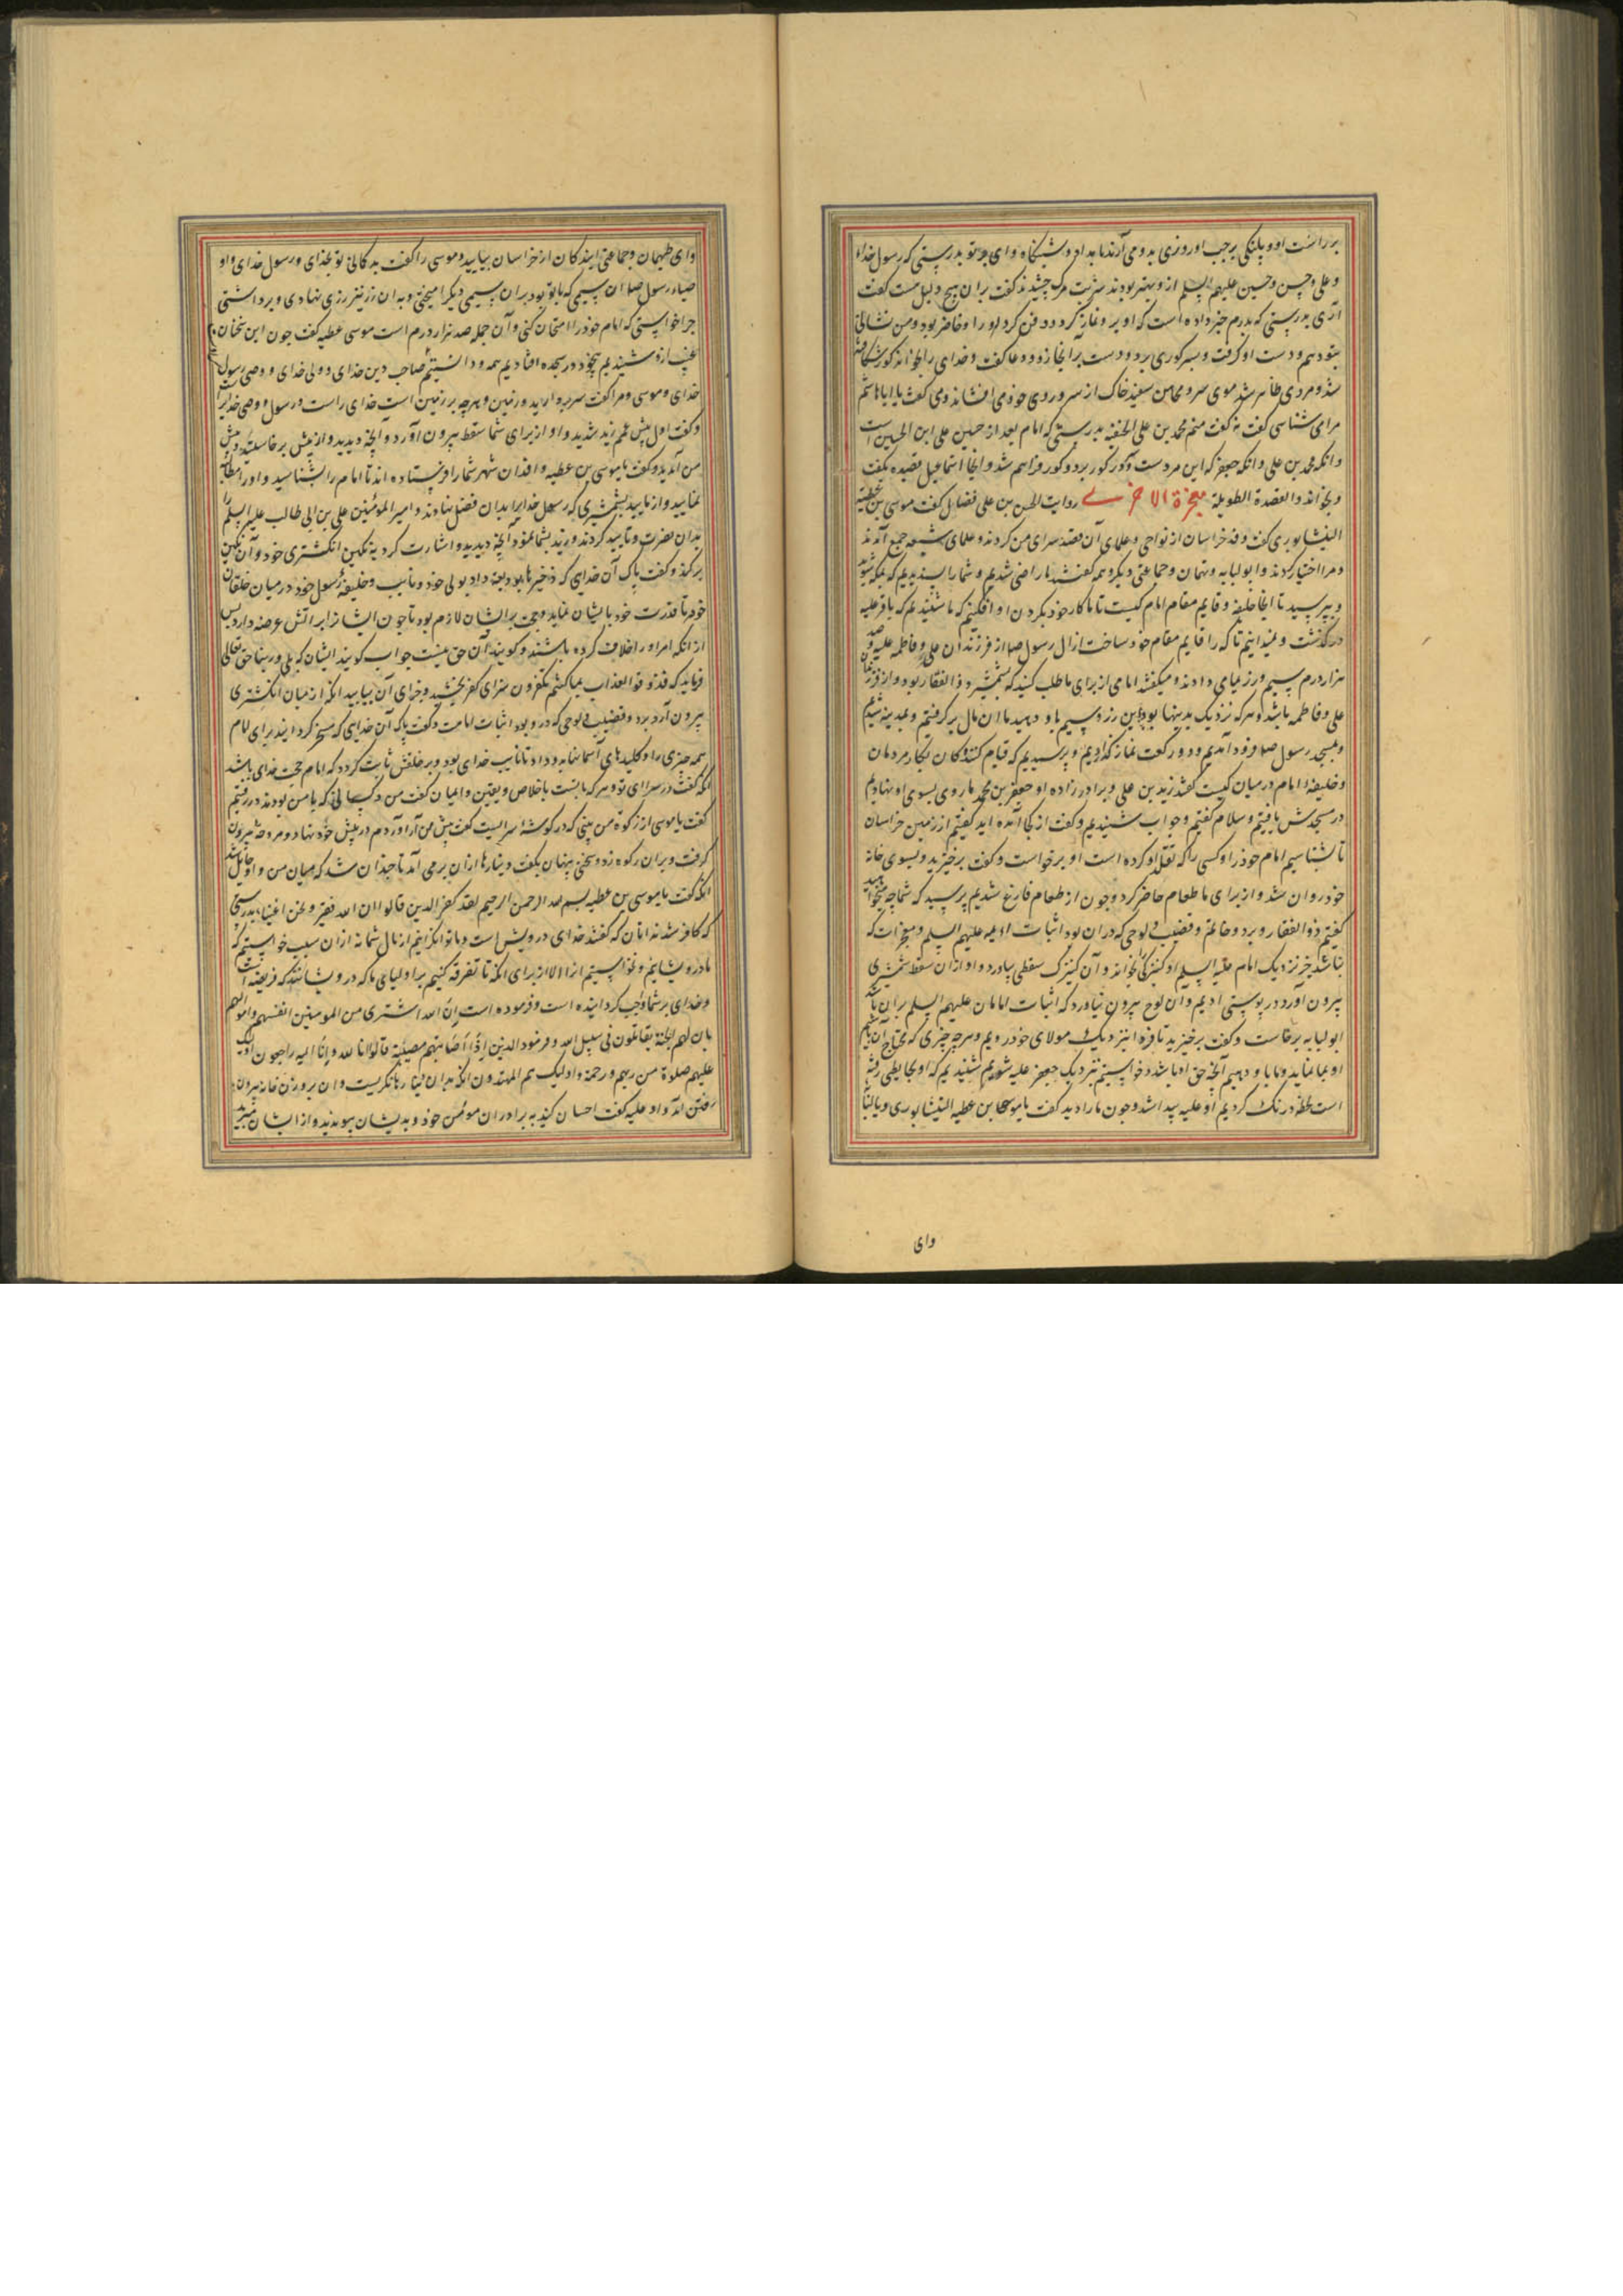 بر راست او و پلنکی بر چپ او روزی بدو می آرند بامداد و شبنکاه وای بر تو بدرستی که رسول خدا
و علی و حسن و حسین علیهم السلم ازو بهتر بودند شربت مرک چشیدند کفت بران هیچ دلیل هست کفت
آری بدرستی که پدرم خبر داده است که او بر و نماز کرد و دفن کرد او را و حاضر بود و من نشانی
بتو دهم و دست او کرفت و بسر کوری برد و دست برانجا زد و دعا کفت و خدای را بخواند کور شکافته
شد و مردی ظاهر شد موی سر و محاسن سفید خاک از سر و روی خود می افشاند و می کفت یا اباهاشم
مرا می شناسی کفت نه کفت منم محمد بن علی الحنفیه بدرستی که امام بعد از حسین علی ابن الحسین است
و انکه محمد بن علی و انکه جعفر که این مردست و سر در کور برد و کور فراهم شد و انجا اسماعیل قصیده بکفت
و بخواند و القصة الطویلة معجزة الاخری روایت الحسن بن علی فضال کفت موسی بن عطیه
النیشابوری کفت وفد خراسان از نواحی و علمای آن قصد سرای من کردند و علمای شیعه جمع آمدند
و مرا اختیار کردند و ابو لبابه و طهمان و جماعتی دیکر و همه کفتند ما راضی شدیم و شما را پسندیدیم که بمکه شوید
و بپرسید تا انجا خلیفه و قایم مقام امام کیست تا ما کار خود بکردن او افکنیم که ما شنیدیم که باقر علیه
درکذشت و نمیدانیم تا که را قایم مقام خود ساخت از ال رسول صلعم از فرزندان علی و فاطمه علیه و صد
هزار درم سیم و زر بمامی دادند و میکفتند امامی از برای ما طلب کنید که شمشیر ذوالفقار بود و از فرزندان
علی و فاطمه باشد و هر که نزدیک بدینها بود این زر و سیم باو دهید ما ان مال بر کرفتیم و بمدینه شدیم
و بمسجد رسول صلعم فرود آمدیم و دو رکعت نماز کزاردیم و پرسیدیم که قیام کننده کان بکار مردمان
و خلیفه امام در میان کیست کفتند زید بن علی و برادر زاده او جعفر بن محمد ما روی بسوی او نهادیم
در مسجدش یافتیم و سلام کفتیم و جواب شنیدیم و کفت از کجا آمده اید کفتیم از زمین خراسان
تا بشناسیم امام خود را و کسی را که تقلد او کرده است او برخواست و کفت برخیزید و بسوی خانه
خود روان شد و از برای ما طعام حاضر کرد و چون از طعام فارغ شدیم پرسید که شما چه میخواهید
کفتیم ذوالفقار و برد و خاتم و قضیب و لوحی که دران بود اثبات ائمه علیهم السلم و معجزات که
نباشد جز نزدیک امام علیه السلم او کنیزکی بخواند و آن کنیزک سفطی بیاورد و او ازان سفط شمشیری
بیرون آورد در پوستی ادیم و ان لوح بیرون نیاورد که اثبات امامان علیهم السلم بران باشد
ابولبابه برخاست و کفت برخیزید تا فردا بنزدیک مولای خود رویم و هر چه چیزی که محتاج آن باشیم
او بما نماید و ما با و دهیم آنچه حق او باشد و خواستیم بنزدیک جعفر علیه شویم شنیدیم که او بجایطی رفته
است لحظه درنک کردیم او علیه پیدا شد و چون ما را دید کفت یا موسی بن عطیه النیشابوری و یا لبابه
وای
وای طهمان و جماعتی ایند کان از خراسان بیایید و موسی را کفت بد کمانی تو بخدای و رسول خدای و او
چرا خواستی که امام خود را امتحان کنی و آن جمله صد هزار درم است موسی عطیه کفت چون این سخنان
ازو شنیدیم بیخود در سجده افتادیم همه و دانستیم صاحب دین خدای و ولی خدای و وصی رسول
خدای و موسی و مرا کفت سر بر دارید و زمین و هر چه بر زمین است خدای راست و رسول و وصی خدایرا
و کفت اول پیش عمم زید شدید و او از برای شما سفط بیرون آورد و آنچه دیدید و از پیش برخاستید و پیش
من آمدید و کفت یا موسی بن عطیه وافدان شهر شما را فرستاده اند تا امام را بشناسید و او را مطالبه
نمایید و از مایید بشمشیری که رسول خدایرا بدان فضل نهادند و امیر المؤمنین علی بن ابی طالب علیه السلم را
بدان نصرت و تأیید کردند و زید بشما نمود آنچه دیدید و اشارت کرد به نکین انکشتری خود و آن نکین
برکند و کفت پاک آن خدایی که ذخیرها بودیعه داد بولی خود و نایب و خلیفه رسول خود در میان خلقان
خود تا قدرت خود بایشان نماید و حجت بر ایشان لازم بود تا چون ایشانرا بر آتش عرضه دارد پس
از انکه امر او را خلاف کرده باشند و کویند آن حق نیست جواب کویند ایشان که بلی و ربنا حق تعالی
فرماید که فذوقوا العذاب بما کنتم تکفرون سزای کفر بچشید و جزای آن بیابید انکه از میان انکشتری
بیرون آورد برد و قضیب و لوحی که درو بود اثبات امامت و کفت پاک آن خدایی که مسخر کردانید برای امام
همه چیزی را و کلیدهای آسمانها بدو داد تا نایب خدای بود و بر خلقش ثابت کردد که امام حجت خدای باشد
انکه کفت در سرا ای تو و هر که با تست باخلاص و یقین و ایمان کفت من و کسانی که با من بودند در رفتیم
کفت یا موسی از زکوة من بینی که در کوشه سرایست کفت پیش من آر آوردم در پیش خود نهاد و مروحه بیرون
کرفت و بران رکوه زد و سخنی پنهان بکفت دینارها ازان برمی آمد تا چندان شد که میان من و او حایل شد
انکه کفت یا موسی بن عطیه بسم الله الرحمن الرحیم لقد کفر الذین قالوا ان الله فقیر و نحن اغنیا بدرستی
که کافر شدند انان که کفتند خدای درویش است و ما توانکرانیم از مال شما نه ازان سبب خواستیم که
ما درویشانیم و نخواستیم از الا از برای انکه تا تفرقه کنیم بر اولیای ما که درویشانند که فریضه
و خدای بر شما واجب کردانیده است و فرموده است ان الله اشتری من المومنین انفسهم و اموالهم
بان لهم الجنة یقاتلون فی سبیل الله و فرمود الذین اذا اصابتهم مصیبة قالوا انا لله و انا الیه راجعون اولیک
علیهم صلوة من ربهم و رحمة و اولیک هم المهتدون انکه بدان دینارها نکریست و ان بروزن خانه بیرون
رفتن آمد و او علیه کفت احسان کنید به برادران مومن خود و بدیشان پیوندید و از ایشان مبرید